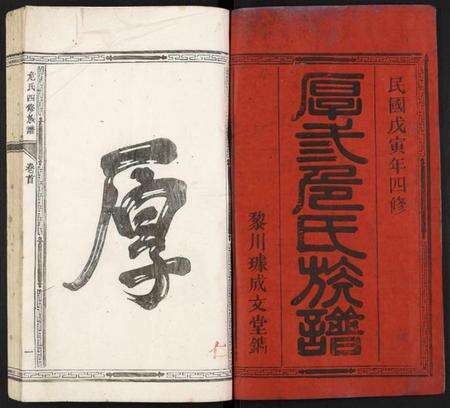 民國戊寅年四修
厚弍危氏族譜
黎川璩成文堂鐫
厚
危氏四修族譜
卷首
一